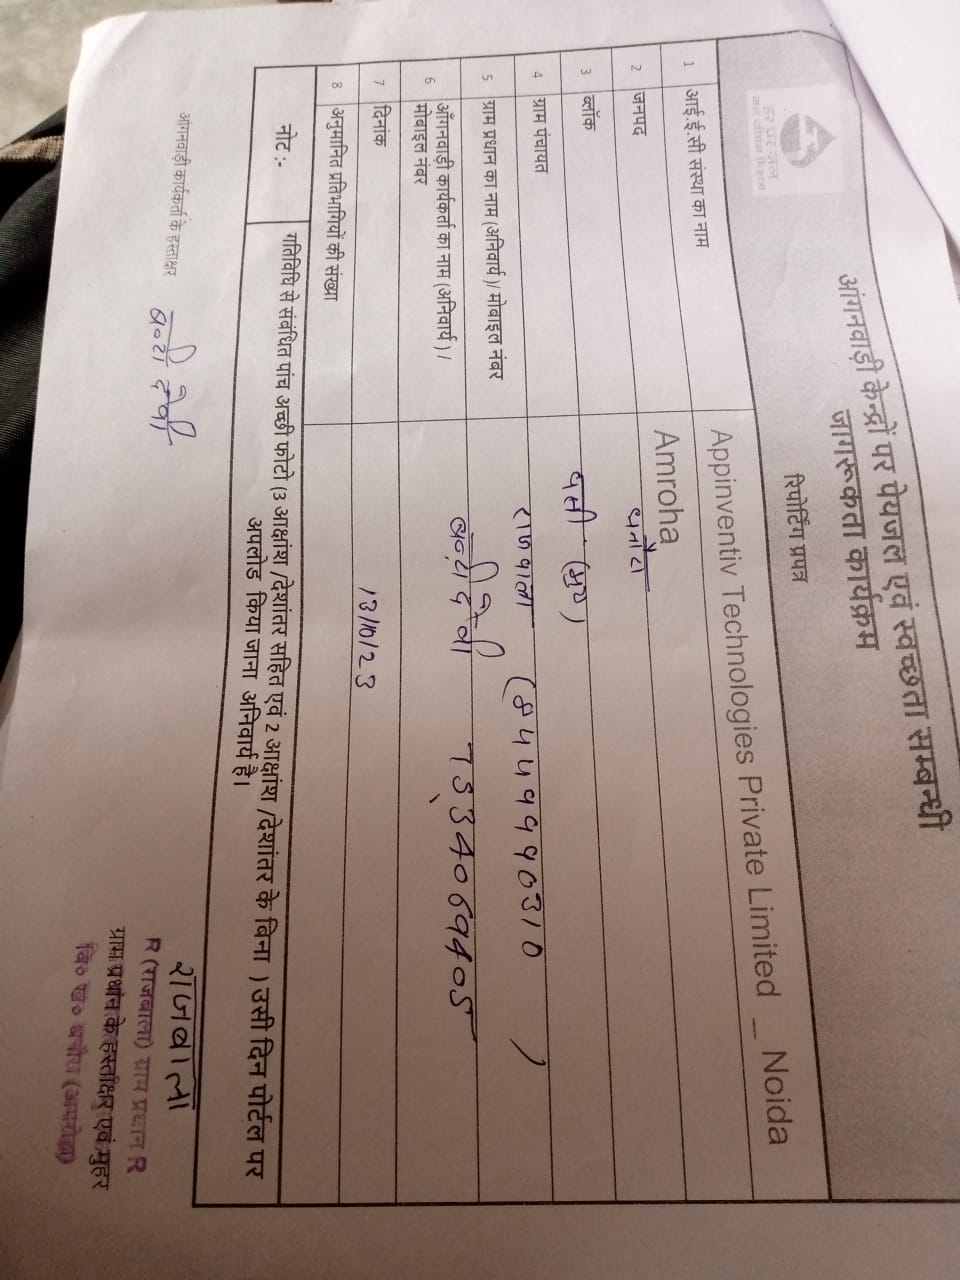 हर घर जल
जल जीवन मिशन
आंगनवाड़ी केन्द्रों पर पेयजल एवं स्वच्छता सम्बन्धी
जागरूकता कार्यक्रम
रिपोर्टिंग प्रपत्र
1 आई.ई.सी संस्था का नाम Appinventiv Technologies Private Limited _ Noida
2 जनपद Amroha
3 ब्लॉक धनौरा
4 ग्राम पंचायत
5 ग्राम प्रधान का नाम (अनिवार्य)/ मोबाइल नंबर राजबाला
6 आँगनवाड़ी कार्यकर्ता का नाम (अनिवार्य) / मोबाइल नंबर
7 दिनांक 13/10/23
8 अनुमानित प्रतिभागियों की संख्या
नोट :- गतिविधि से संबंधित पांच अच्छी फोटो (3 आक्षांश /देशांतर सहित एवं 2 आक्षांश /देशांतर के बिना ) उसी दिन पोर्टल पर
अपलोड किया जाना अनिवार्य है।
आंगनवाड़ी कार्यकर्ता के हस्ताक्षर
राजबाला
R (राजबाला) ग्राम प्रधान R
ग्राम प्रधान के हस्ताक्षर एवं मुहर
वि० ख० धनौरा (अमरोहा)